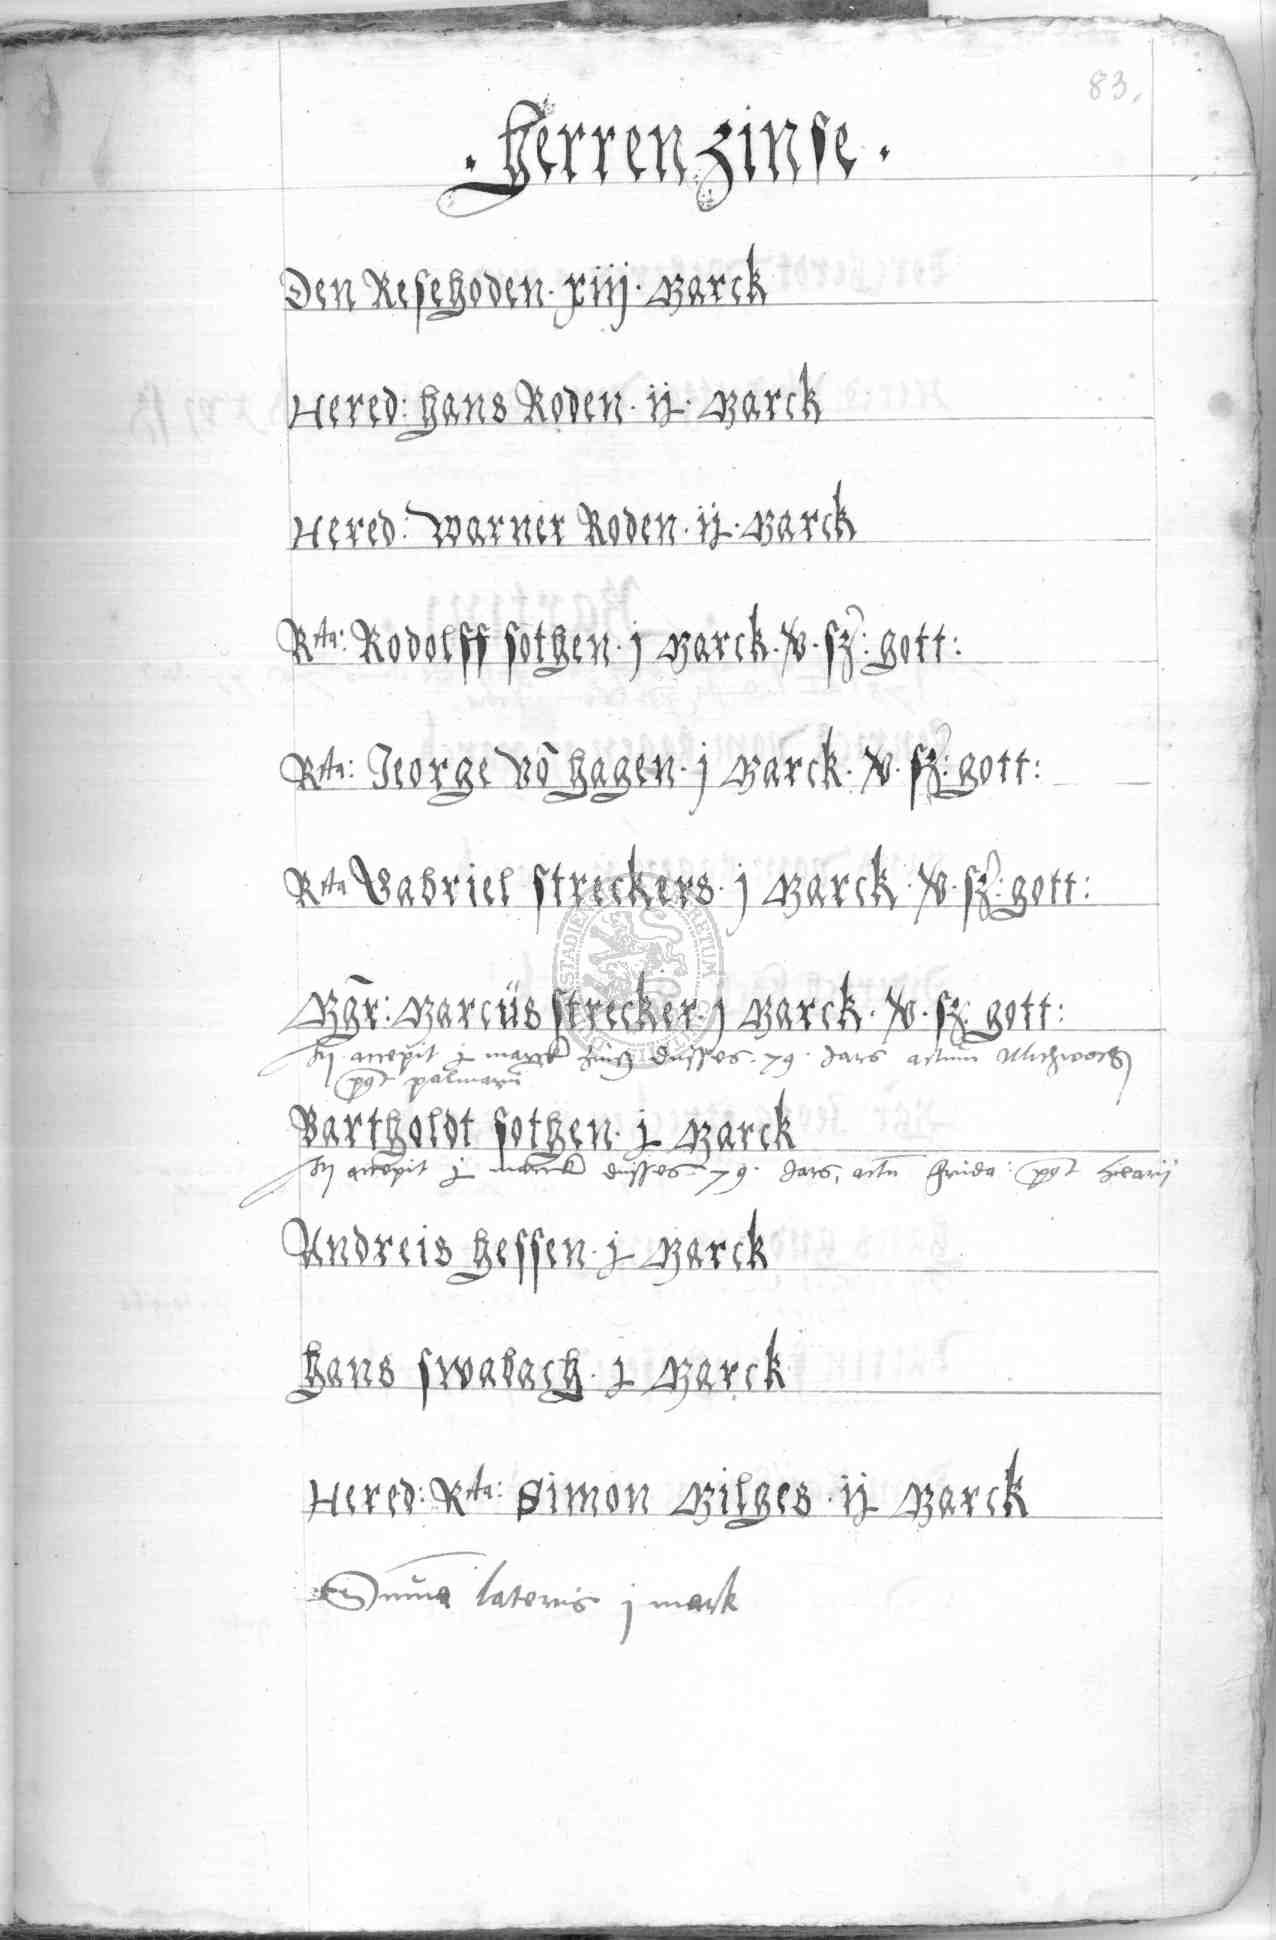 83.
. Herren zinse .
Den Resehoden. xiij. Marck
Hered: Hans Roden. ij. Marck
Hered: Warner Roden. ij. Marck
Rta: Rodolff sothen. j Marck. v. sz: gott:
Rta: Jeorge vō Hagen. j Marck. v. sz: gott:
Rta Gabriel streckers. j Marck. v. sz: gott:
Mgr̄: Marcus strecker. j Marck. v. sz: gott:
accepit j marck dusses. 79. Jars actum Mitzwoch
post palmarū
Bartholdt sothen. j Marck
accepit j marck dusses. 79. Jars, actū frida: post hilarij
Andreis Hessen. j Marck
Hans swabach. j Marck
Hered: Rta: Simon Gilges. ij Marck
Suma lateris j mark